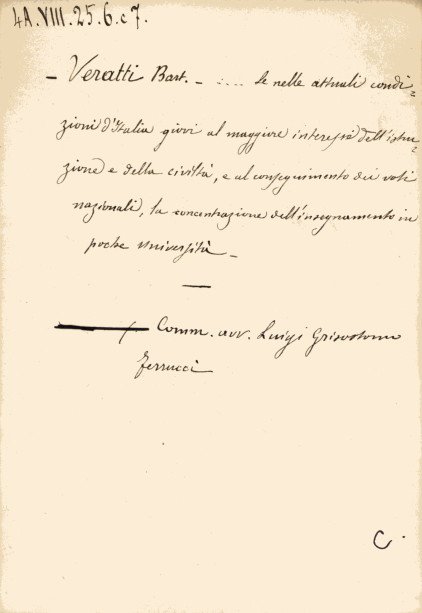 4A.VIII.25.6.c7.
- Veratti Bart. - .... se nelle attuali condi=
zioni d'Italia giovi al maggiore interesse dell'istru=
zione e della civiltà, e al conseguimento dei voti
nazionali, la concentrazione dell'insegnamento in
poche Università -
Comm. avv. Luigi Grisostomo
Ferrucci
C.